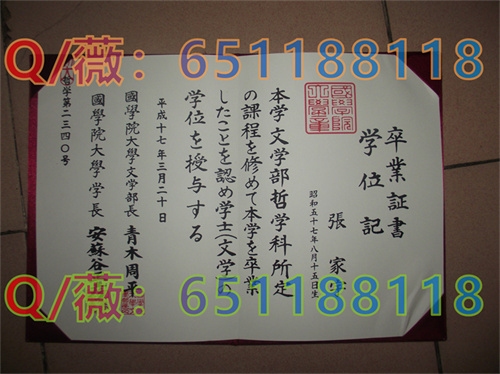 Q/薇：651188118
卒業証書
学位記
國學院
大學章
張家
昭和五十七年八月十五日生
本学文学部哲学科所定
の課程を修めて本学を卒業
したことを認め学士（文学）の
学位を授与する
平成十七年三月二十日
國學院大學文学部長 青木周平
國學院大學学長 安蘇谷
哲学第二三四〇号
Q/薇：651188118